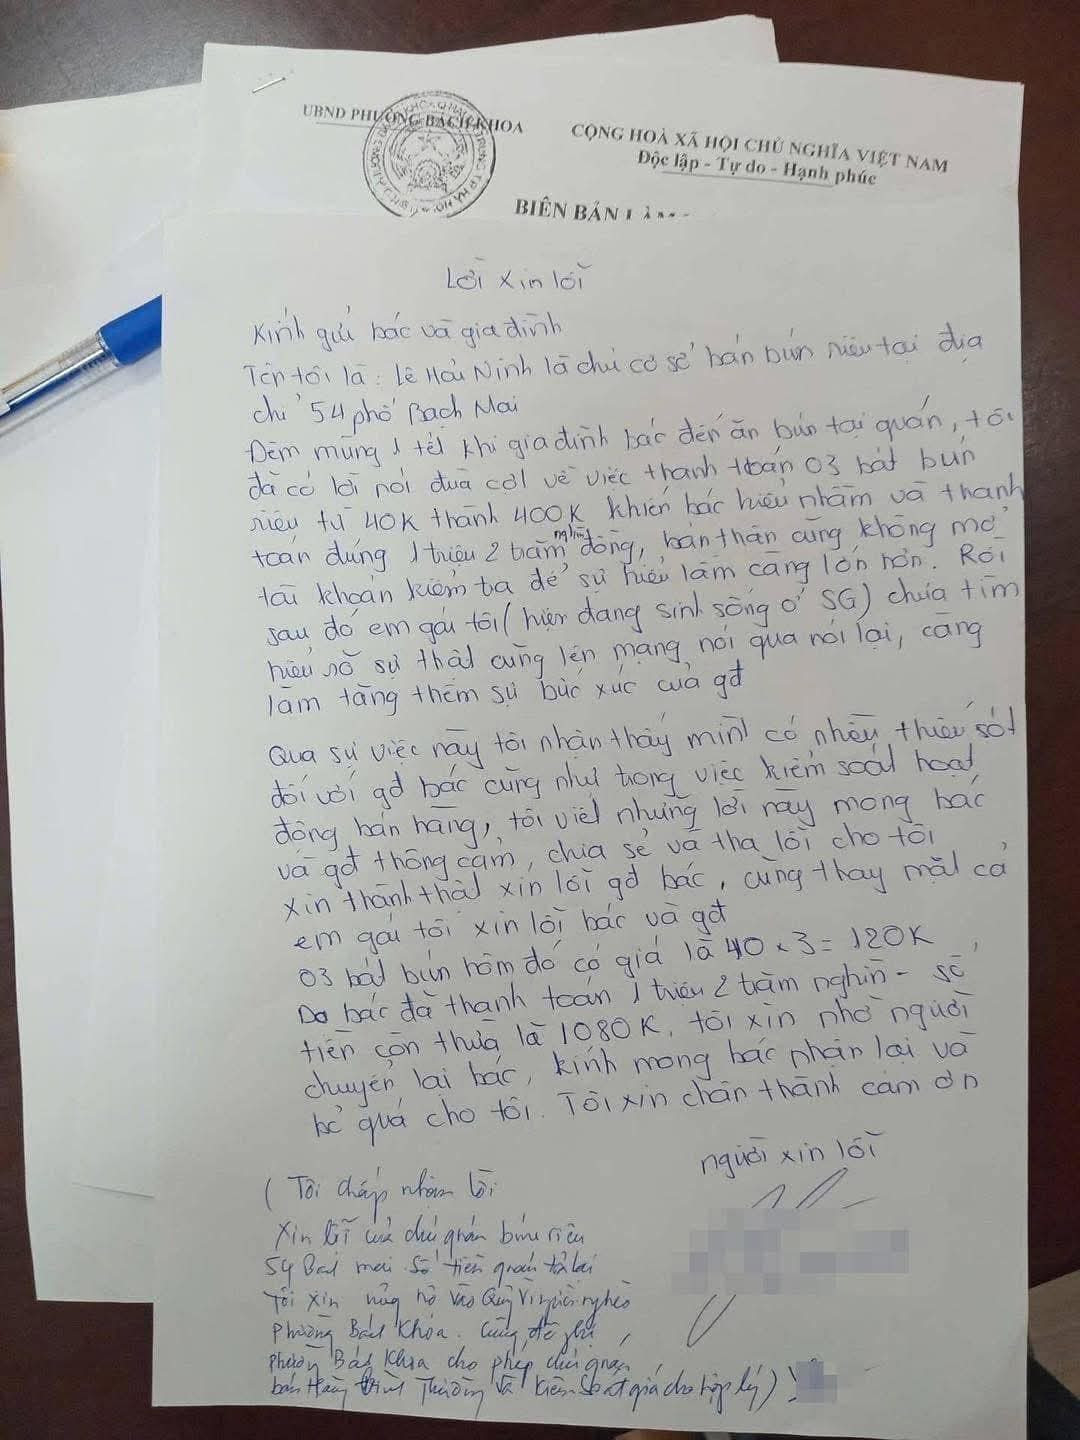 UBND PHƯỜNG BÁCH KHOA
CỘNG HOÀ XÃ HỘI CHỦ NGHĨA VIỆT NAM
Độc lập - Tự do - Hạnh phúc
BIÊN BẢN
Lời xin lỗi
Kính gửi bác và gia đình
Tên tôi là: Lê Hải Ninh là chủ cơ sở bán bún riêu tại địa
chỉ 54 phố Bạch Mai
Đêm mùng 1 tết khi gia đình bác đến ăn bún tại quán, tôi
đã có lời nói đùa cợt về việc thanh toán 03 bát bún
riêu từ 40K thành 400K khiến bác hiểu nhầm và thanh
toán đúng 1 triệu 2 trăm nghìn đồng, bản thân cũng không mở
tài khoản kiểm tra để sự hiểu lầm càng lớn hơn. Rồi
sau đó em gái tôi (hiện đang sinh sống ở SG) chưa tìm
hiểu rõ sự thật cũng lên mạng nói qua nói lại, càng
làm tăng thêm sự bức xúc của gđ
Qua sự việc này tôi nhận thấy mình có nhiều thiếu sót
đối với gđ bác cũng như trong việc kiểm soát hoạt
động bán hàng, tôi viết những lời này mong bác
và gđ thông cảm, chia sẻ và tha lỗi cho tôi
xin thành thật xin lỗi gđ bác, cũng thay mặt cả
em gái tôi xin lỗi bác và gđ
03 bát bún hôm đó có giá là 40 x 3 = 120K
Do bác đã thanh toán 1 triệu 2 trăm nghìn - số
tiền còn thừa là 1080K, tôi xin nhờ người
chuyển lại bác, kính mong bác nhận lại và
bỏ quá cho tôi. Tôi xin chân thành cảm ơn
người xin lỗi
(Tôi chấp nhận lời
Xin lỗi của chủ quán bún riêu
54 Bạch mai. Số tiền quán trả lại
Tôi xin ủng hộ vào Quỹ Vì người nghèo
Phường Bách Khoa. Cũng đề nghị
phường Bách Khoa cho phép chủ quán
bán Hàng Bình Thường Và Kiểm Soát giá cho hợp lý)